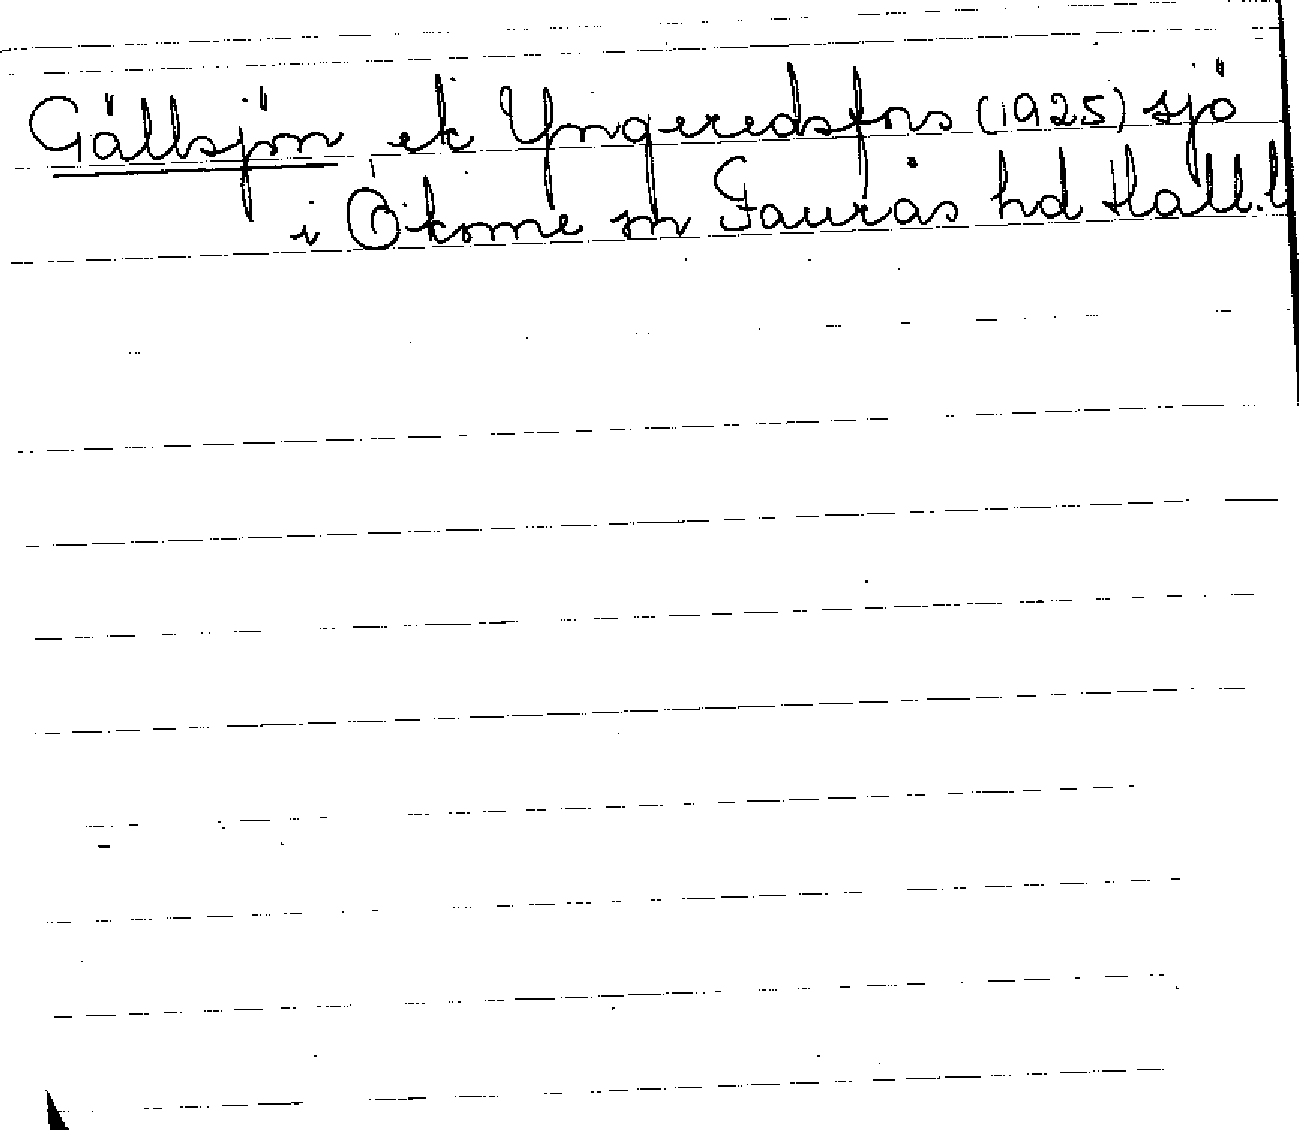 Gällsjön ek Yngeredsfors (1925) sjö
i Okome sn Faurås hd Hall. l